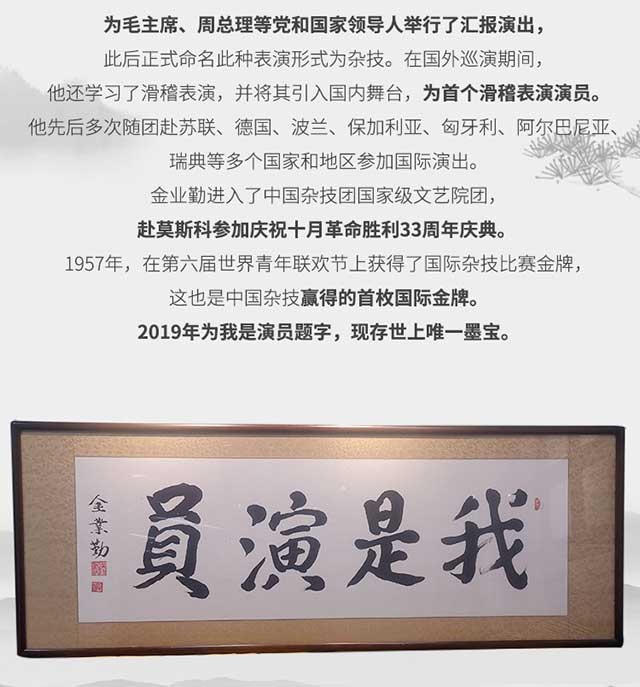 为毛主席、周总理等党和国家领导人举行了汇报演出，
此后正式命名此种表演形式为杂技。在国外巡演期间，
他还学习了滑稽表演，并将其引入国内舞台，为首个滑稽表演演员。
他先后多次随团赴苏联、德国、波兰、保加利亚、匈牙利、阿尔巴尼亚、
瑞典等多个国家和地区参加国际演出。
金业勤进入了中国杂技团国家级文艺院团，
赴莫斯科参加庆祝十月革命胜利33周年庆典。
1957年，在第六届世界青年联欢节上获得了国际杂技比赛金牌，
这也是中国杂技赢得的首枚国际金牌。
2019年为我是演员题字，现存世上唯一墨宝。
我是演員
金業勤